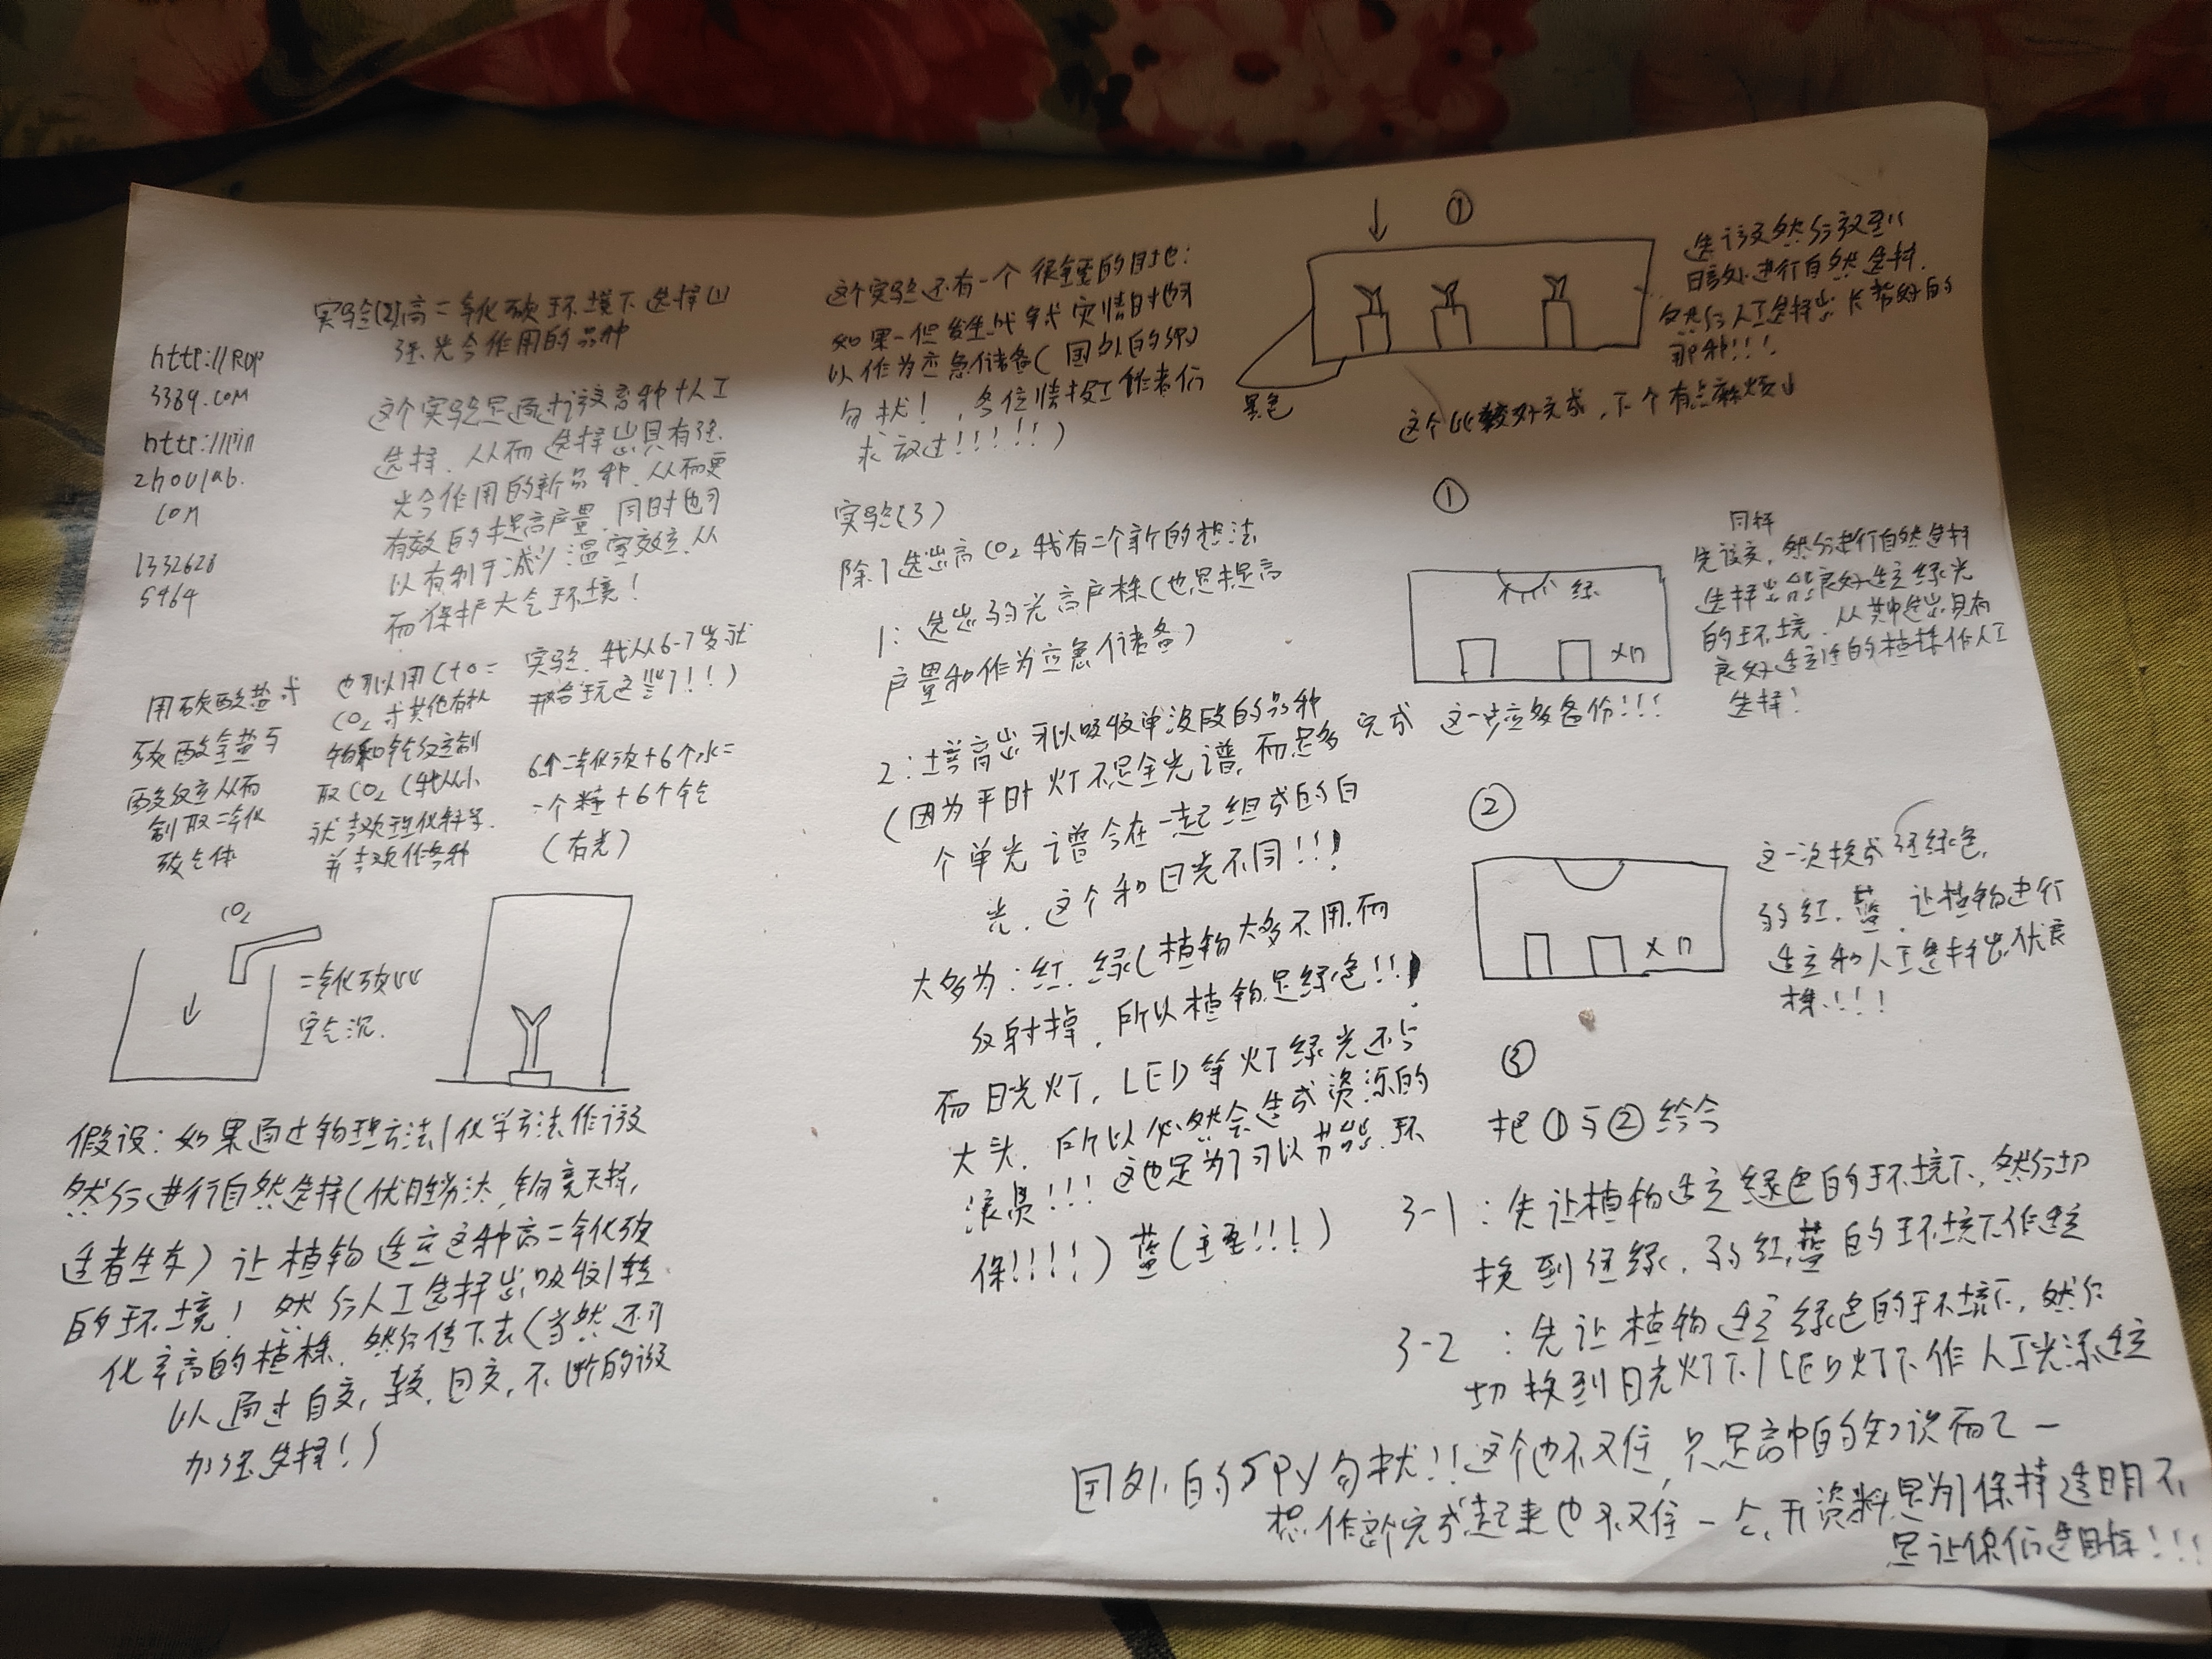 实验(2)高二氧化碳环境下选择
强光合作用的品种
http://RDP
3389.com
http://pin
zhoulab.
com
1332628
5464
这个实验是通过诱变育种+人工
选择，从而选择出具有强
光合作用的新品种，从而更
有效的提高产量，同时也可
以有利于减少温室效应，从
而保护大气环境！
用碳酸盐或
碳酸氢盐与
酸反应从而
制取二氧化
碳气体
也可以用C+O=
CO₂或其他有机
物和氧反应制
取CO₂(我从小
就喜欢理化科学，
并喜欢作各种
实验，我从6-7岁就
开始玩这些了!!)
6个二氧化碳+6个水=
一个糖+6个氧气
(有光)
CO₂
二氧化碳比
空气沉.
假设：如果通过物理方法/化学方法作诱变
然后进行自然选择(优胜劣汰，物竞天择，
适者生存)让植物适应这种高二氧化碳
的环境！然后人工选择出吸收/转
化率高的植株，然后传下去(当然还可
以通过自交，杂交，回交，不断的诱变
加强选择！)
这个实验还有一个很重要的目地：
如果一但发生战争或灾情时也可
以作为应急储备(国外的SPY
勿扰！，各位情报工作者们
求放过!!!!!)
实验(3)
除了选出高CO₂我有二个新的想法
1：选出弱光高产株(也是提高
产量和作为应急储备)
2：培育出可以吸收单波段的品种
(因为平时灯不是全光谱，而是多
个单光谱合在一起组成的白
光，这个和日光不同!!!
大多为：红，绿(植物大多不用，而
反射掉，所以植物是绿色!!!
而日光灯，LED等灯绿光还占
大头，所以必然会造成资源的
浪费!!!这也是为了可以节能，环
保!!!!)蓝(主要!!!)
①
先诱变然后放到
暗处进行自然选择，
然后人工选择出长势好的
那种!!!
黑色
这个比较好完成，下个有点麻烦↓
①
绿
×n
同样
先诱变，然后进行自然选择
选择出能良好适应绿光
的环境，从其中选出具有
良好适应性的植株作人工
选择！
完成这一步应多备份!!!
②
×n
这一次换成强绿色，
弱红，蓝，让植物进行
适应和人工选择出优良
株!!!
③
把①与②结合
3-1：先让植物适应绿色的环境下，然后切
换到强绿，弱红，蓝的环境下作适应
3-2：先让植物适应绿色的环境下，然后
切换到日光灯下/LED灯下作人工光源适应
国外的SPY勿扰!!这个也不难，只是高中的知识而已—
想作这个完成起来也不难—公开资料是为了保持透明不
是让你们选目标!!!